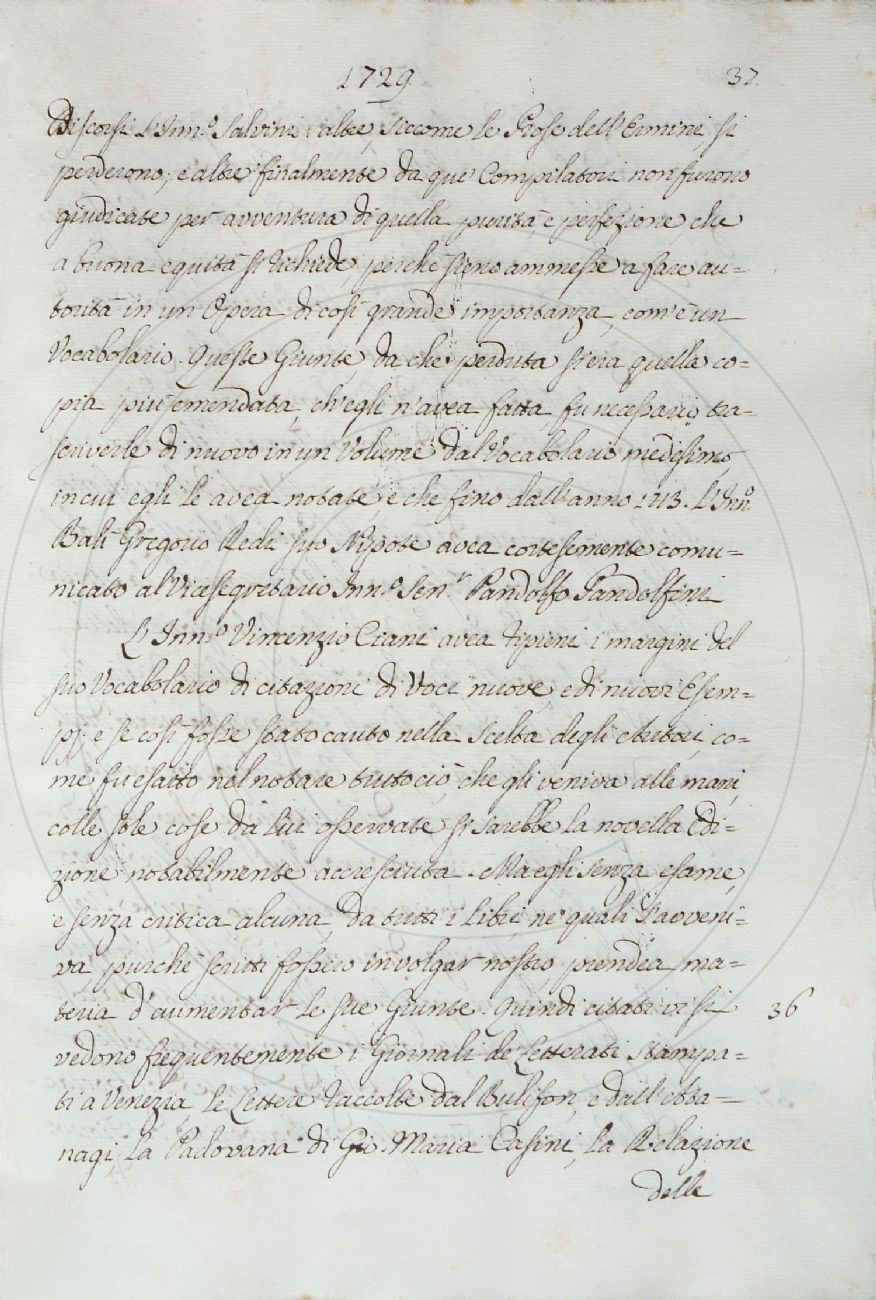 1729 37.
Discorsi L'Inn.º Salvini; altre, siccome le Prose dell'Ermini, si
perderono; e altre finalmente da que' Compilatori non furono
giudicate per avventura di quella purità, e perfezione, che
a buona equità si richiede, perchè sieno ammesse a fare au=
torità in un'Opera di così grande importanza, com'è un
Vocabolario. Queste Giunte, da che perduta s'era quella co=
pia più emendata, ch'egli n'avea fatta fu necessario tra=
scriverle di nuovo in un Volume dal Vocabolario medesimo,
in cui egli le avea notate e che fino dall'anno 1713. L'Inn.º
Balì Gregorio Redi suo Nipote avea cortesemente comu=
nicato al Vicesegretario Inn.º Sen.r Pandolfo Pandolfini
L'Inn.º Vincenzio Ciani avea ripieni i margini del
suo Vocabolario di citazioni di Voci nuove, e di nuovi Esem=
pj; e se così fosse stato cauto nella scelta degli Autori, co=
me fu esatto nel notare tutto ciò, che gli veniva alle mani,
colle sole cose da lui osservate si sarebbe la novella Edi=
zione notabilmente accresciuta. Ma egli senza esame,
e senza critica alcuna, da tutti i Libri ne' quali s'avveni=
va, purchè scritti fossero in volgar nostro, prendea ma=
teria d'aumentar le sue Giunte. Quindi citati vi si 36
vedono frequentemente i Giornali de' Letterati stampa=
ti a Venezia, le Lettere raccolte dal Bulifon, e dall'Abba=
nagi, la Padovana di Gio. Maria Casini, la Relazione
delle